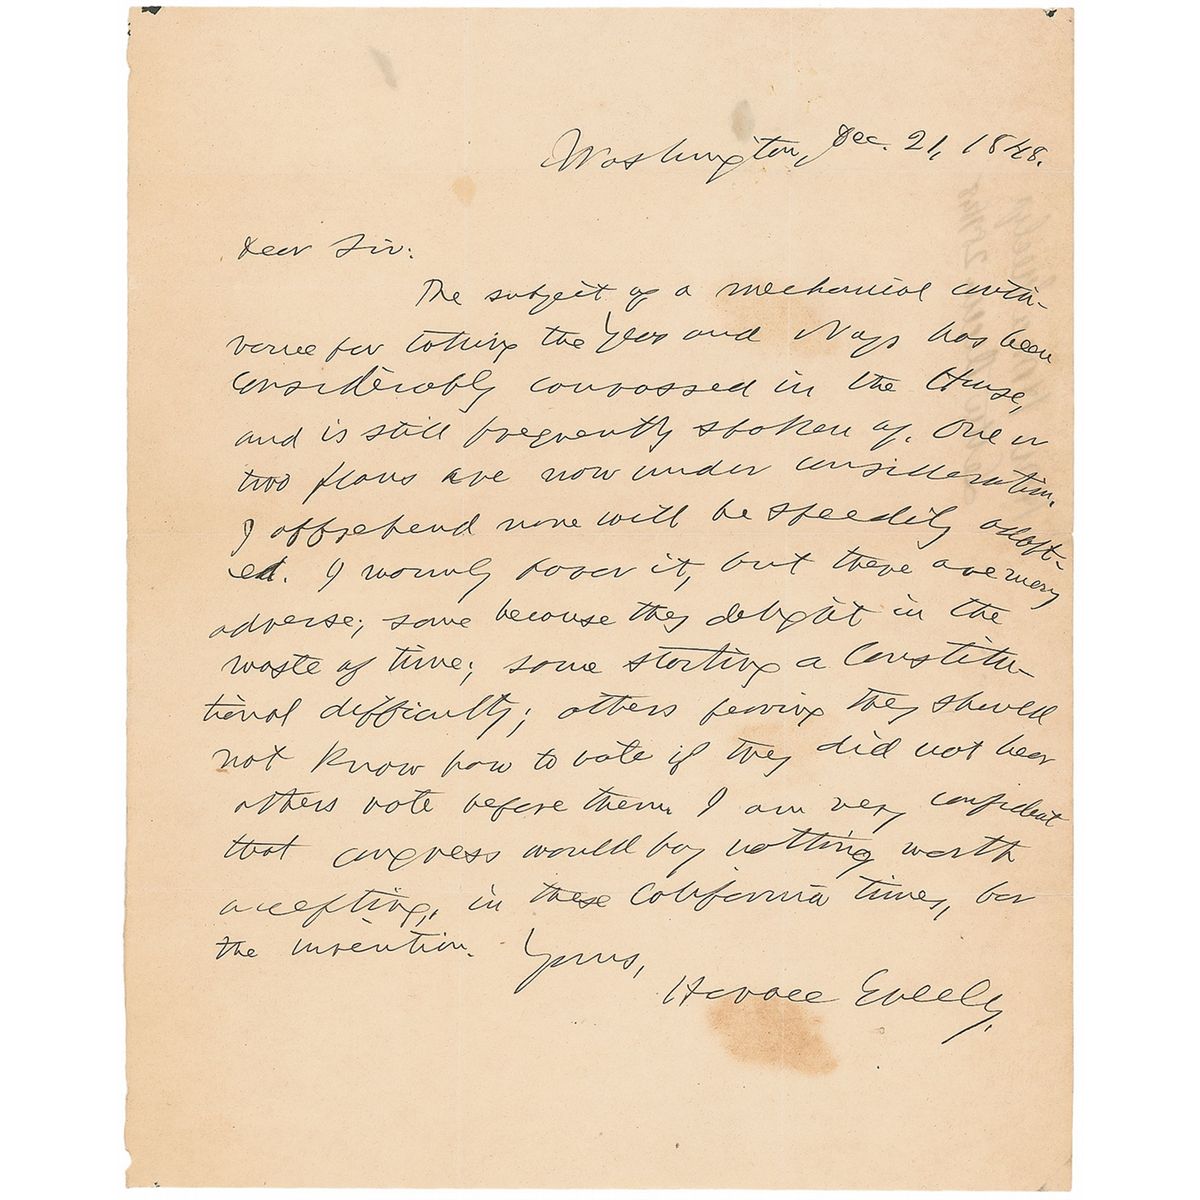 Washington, Dec. 21, 1848.
Dear Sir:
The subject of a mechanical contri-
vance for taking the Yeas and Nays has been
considerably canvassed in the House,
and is still frequently spoken of. One or
two plans are now under consideration.
I apprehend none will be speedily adopt-
ed. I warmly favor it, but there are many
adverse; some because they delight in the
waste of time; some starting a Constitu-
tional difficulty; others fearing they should
not know how to vote if they did not hear
others vote before them. I am very confident
that Congress would pay nothing worth
accepting, in these California times, for
the invention. Yours,
Horace Greeley.